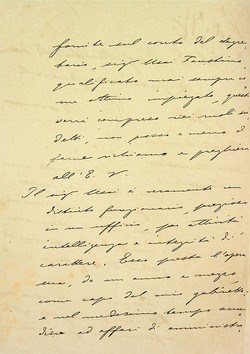 fornite sul conto del segre
tario, sig. Masi Faustino,
qualificato mai sempre co
me ottimo impiegato, questi
verrà compreso nei ruoli su
detti, non posso a meno di
farne richiamo e preghiera
all'E. V.
Il sig. Masi è veramente un
distinto funzionario, prezioso
in un ufficio, per attività
intelligenza e integrità di
carattere. Esso presta l'opera
sua, da un anno e mezzo
come capo del mio gabinetto,
e nel medesimo tempo acu
disce ad affari di amministra